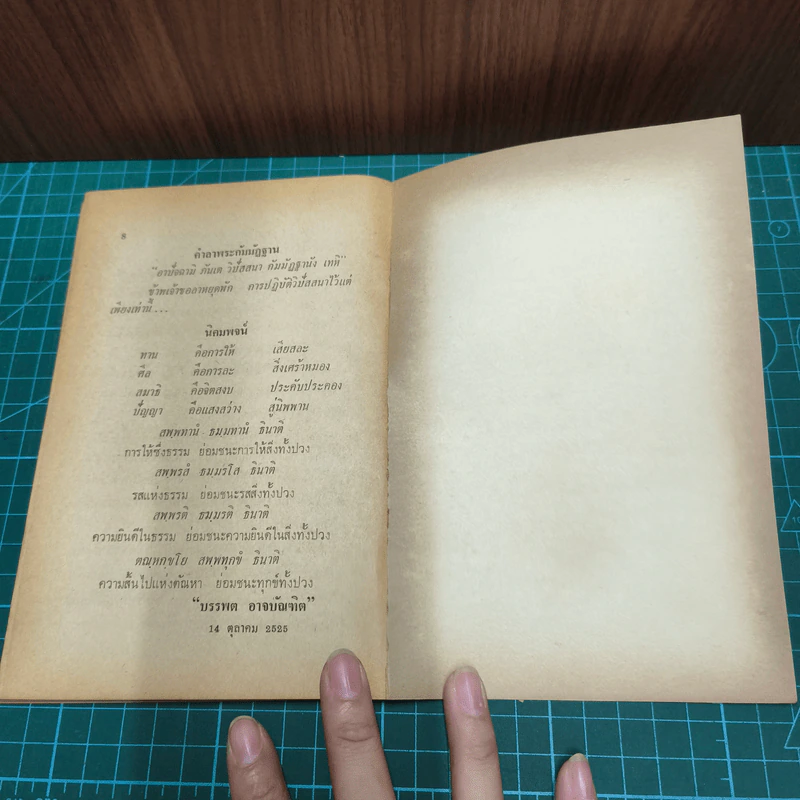 ๘
คำลาพระกัมมัฏฐาน
"อาปัจฉามิ ภันเต วิปัสสนา กัมมัฏฐานัง เทหิ
ข้าพเจ้าขอลาหยุดพัก การปฏิบัติวิปัสสนาไว้แต่
เพียงเท่านี้...
นิคมพจน์
ทาน คือการให้ เสียสละ
ศีล คือการละ สิ่งเศร้าหมอง
สมาธิ คือจิตสงบ ประคับประคอง
ปัญญา คือแสงสว่าง สู่นิพพาน
สพฺพทานํ ธมฺมทานํ ชินาติ
การให้ซึ่งธรรม ย่อมชนะการให้สิ่งทั้งปวง
สพฺพรสํ ธมฺมรโส ชินาติ
รสแห่งธรรม ย่อมชนะรสสิ่งทั้งปวง
สพฺพรติ ธมฺมรติ ชินาติ
ความยินดีในธรรม ย่อมชนะความยินดีในสิ่งทั้งปวง
ตณฺหกฺขโย สพฺพทุกขํ ชินาติ
ความสิ้นไปแห่งตัณหา ย่อมชนะทุกข์ทั้งปวง
"บรรพต อาจบัณฑิต"
14 ตุลาคม 2525